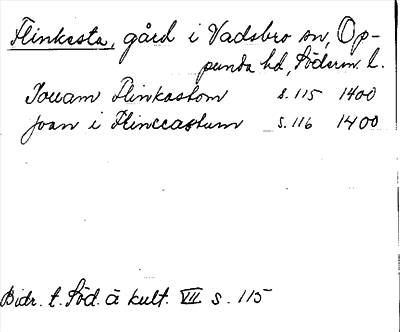 Flinkasta, gård i Vadsbro sn, Op-
punda hd, Söderm. l.
Jouam Flinkastom s. 115 1400
Joan i Flinccastum s. 116 1400
Bidr. t. Söd. ä kult. VII s. 115